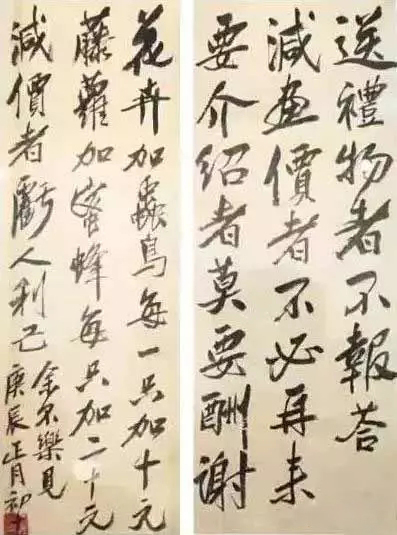 送禮物者不報荅
減畫價者不必再来
要介紹者莫要酬謝
花卉加蟲鳥每一只加十元
藤蘿加蜜蜂每只加二十元
減價者虧人利己
余不樂見
庚辰正月初十